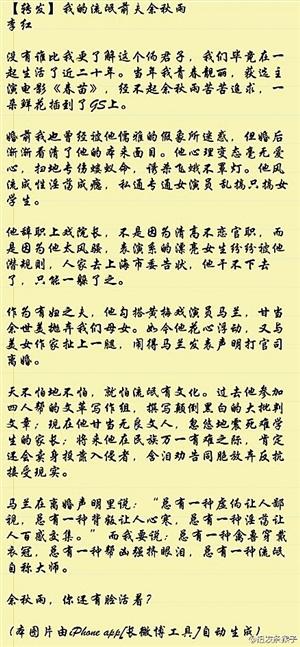 【转发】我的流氓前夫余秋雨
李红
没有谁比我更了解这个伪君子，我们毕竟在一
起生活了近二十年。当年我青春靓丽，获选主
演电影《春苗》，经不起余秋雨苦苦追求，一
朵鲜花插到了GS上。
婚前我也曾经被他儒雅的假象所迷惑，但婚后
渐渐看清了他的本来面目。他心理变态毫无爱
心，扫地专伤蝼蚁命，诱杀飞蛾不罩灯。他风
流成性淫荡成瘾，私通专通女演员，乱搞只搞女
学生。
他辞职上戏院长，不是因为清高不恋官职，而
是因为他太风骚，表演系的漂亮女生纷纷被他
潜规则，人家去上海市委告状，他干不下去
了，只能一躲了之。
作为有妇之夫，他勾搭黄梅戏演员马兰，甘当
余世美抛弃我们母女。如今他花心浮动，又与
美女作家扯上一腿，闹得马兰发表声明打官司
离婚。
天不怕地不怕，就怕流氓有文化。过去他参加
四人帮的文革写作组，撰写颠倒黑白的大批判
文章；现在他甘当无良文人，忽悠地震死难学
生的家长；将来他在民族万一有难之际，肯定
还会卖身投靠入侵者，含泪劝告同胞放弃反抗
接受现实。
马兰在离婚声明里说：“总有一种虚伪让人鄙
视，总有一种背叛让人心寒，总有一种淫荡让
人百感交集。”而我要说：总有一种禽兽穿戴
衣冠，总有一种帮凶强挤眼泪，总有一种流氓
自称大师。
余秋雨，你还有脸活着？
(本图片由iPhone app[长微博工具]自动生成)